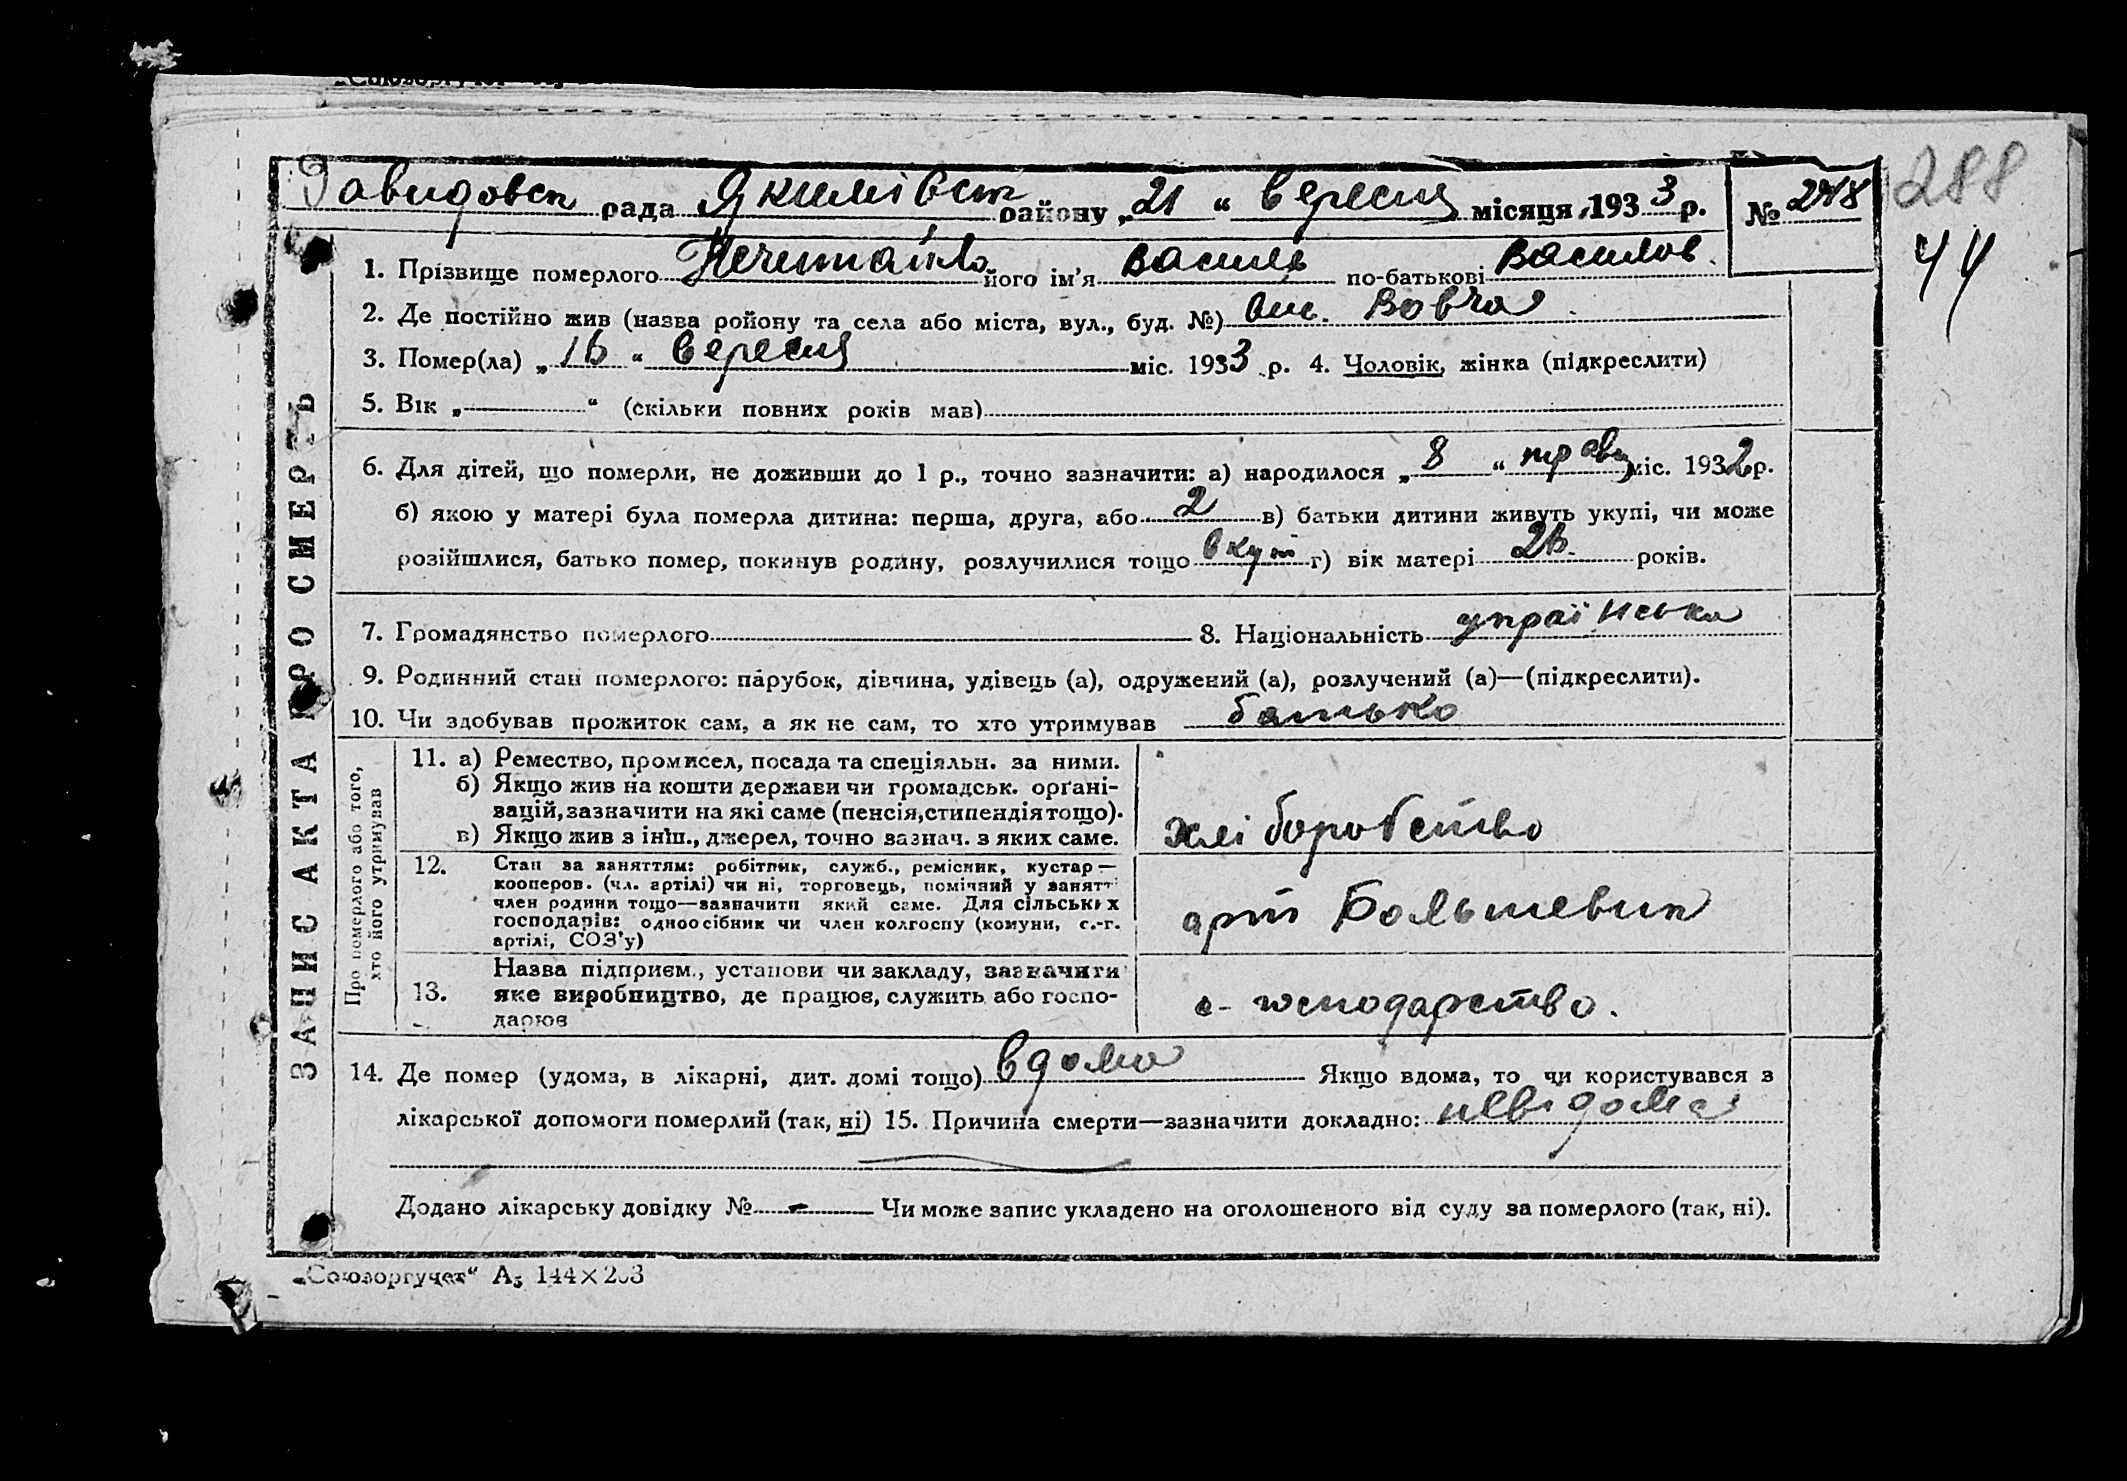 Давидовск рада Якимівськ району „21“ вересня місяця 1933 р. № 248
288
44
1. Прізвище померлого Нечитайло його ім'я Василь по-батькові Василов.
2. Де постійно жив (назва ройону та села або міста, вул., буд. №) Вовча
3. Помер(ла) „16“ вересня міс. 1933 р. 4. Чоловік, жінка (підкреслити)
5. Вік „—“ (скільки повних років мав)
6. Для дітей, що померли, не доживши до 1 р., точно зазначити: а) народилося „8“ травн міс. 1932 р.
б) якою у матері була померла дитина: перша, друга, або 2 в) батьки дитини живуть укупі, чи може
розійшлися, батько помер, покинув родину, розлучилися тощо вкупі г) вік матері 26 років.
7. Громадянство померлого 8. Національність українська
9. Родинний стан померлого: парубок, дівчина, удівець (а), одружений (а), розлучений (а)—(підкреслити).
10. Чи здобував прожиток сам, а як не сам, то хто утримував батько
ЗАПИС АКТА ПРО СМЕРТЬ
Про померлого або того,
хто його утримував
11. а) Ремество, промисел, посада та спеціяльн. за ними.
б) Якщо жив на кошти держави чи громадськ. орґані-
зацій, зазначити на які саме (пенсія, стипендія тощо).
в) Якщо жив з інш., джерел, точно зазнач. з яких саме.
хліборобство
12. Стан за заняттям: робітник, служб., ремісник, кустар—
кооперов. (чл. артілі) чи ні, торговець, помічний у занятті
член родини тощо—зазначити який саме. Для сільських
господарів: одноосібник чи член колгоспу (комуни, с.-г.
артілі, СОЗ'у)
арт Большевик
13. Назва підприєм., установи чи закладу, зазначити
яке виробництво, де працює, служить або госпо-
дарює
с-господарство.
14. Де помер (удома, в лікарні, дит. домі тощо) вдома Якщо вдома, то чи користувався з
лікарської допомоги померлий (так, ні) 15. Причина смерти—зазначити докладно: невідома
Додано лікарську довідку № — Чи може запис укладено на оголошеного від суду за померлого (так, ні).
„Союзоргучет“ А5 144×203